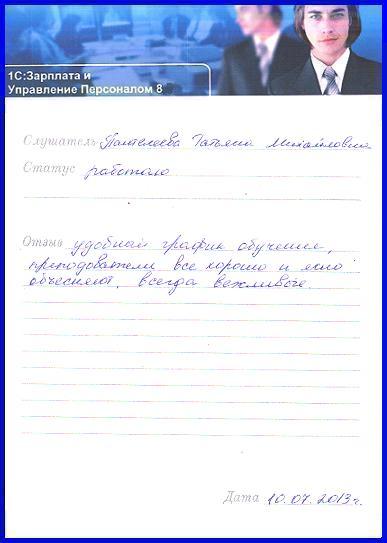 1С:Зарплата и
Управление Персоналом 8
Слушатель Пантелеева Татьяна Михайловна
Статус работаю
Отзыв удобный график обучения,
преподователи все хорошо и ясно
объесняют, всегда вежливые.
Дата 10.07.2013г.